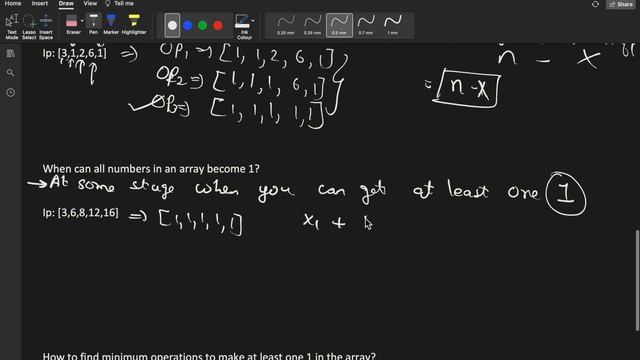 Draw View Tell me
Share
Text Mode Lasso Select Insert Space Eraser Pen Marker Highlighter Ink Colour 0.25 mm 0.35 mm 0.5 mm 0.7 mm 1 mm
Ip: [3,1,2,6,1] => OP1 => [1, 1, 2, 6, 1]
n - x
OP2 => [1, 1, 1, 6, 1]
= n - x
OP3 => [1, 1, 1, 1, 1]
When can all numbers in an array become 1?
→ At some stage when you can get at least one 1
Ip: [3,6,8,12,16] => [1, 1, 1, 1, 1] x1 +
How to find minimum operations to make at least one 1 in the array?